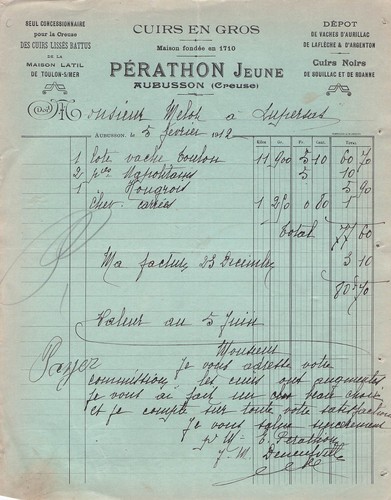 SEUL CONCESSIONNAIRE
pour la Creuse
DES CUIRS LISSÉS BATTUS
DE LA
MAISON LATIL
DE TOULON-S/MER
CUIRS EN GROS
Maison fondée en 1710
PÉRATHON JEUNE
AUBUSSON (Creuse)
DÉPÔT
DE VACHES D'AURILLAC
DE LAFLÈCHE & D'ARGENTON
Cuirs Noirs
DE BOUILLAC ET DE ROANNE
Doit Monsieur à Lupersat
AUBUSSON, le 5 février 1912
1 lote vache Toulon 11 900 5 10 60 70
2 Napolitains 5 10
1 Hongrois 5 90
1 1 1
Total 77 60
Ma facture 23 Décembre 3 10
80 70
Valeur au 5 Juin
Payer
Monsieur
Je vous adresse votre
commission, les cuirs ont augmentés
je vous ai fait un choix
et je compte sur toute votre satisfaction
Je vous salue sincèrement
Pérathon